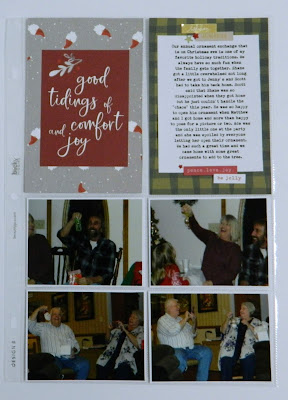 good
tidings of
comfort
and
joy
Our annual ornament exchange that
is on Christmas eve is one of my
favorite holiday traditions. We
always have so much fun when
the family gets together. Shane
got a little overwhelmed and long
after we got to Jenny's and Scott
had to take him back home. Scott
said that Shane was so
disappointed when they got home
but he just couldn't handle the
"chaos" this year. He was so happy
to open his ornament when Matthew
and I got home and more than happy
to pose for a picture or two. She was
the only little one at the party
and she was spoiled by everyone
letting her open their ornaments.
We had such a great time and we
came home with some great
ornaments to add to the tree.
peace love joy
be jolly